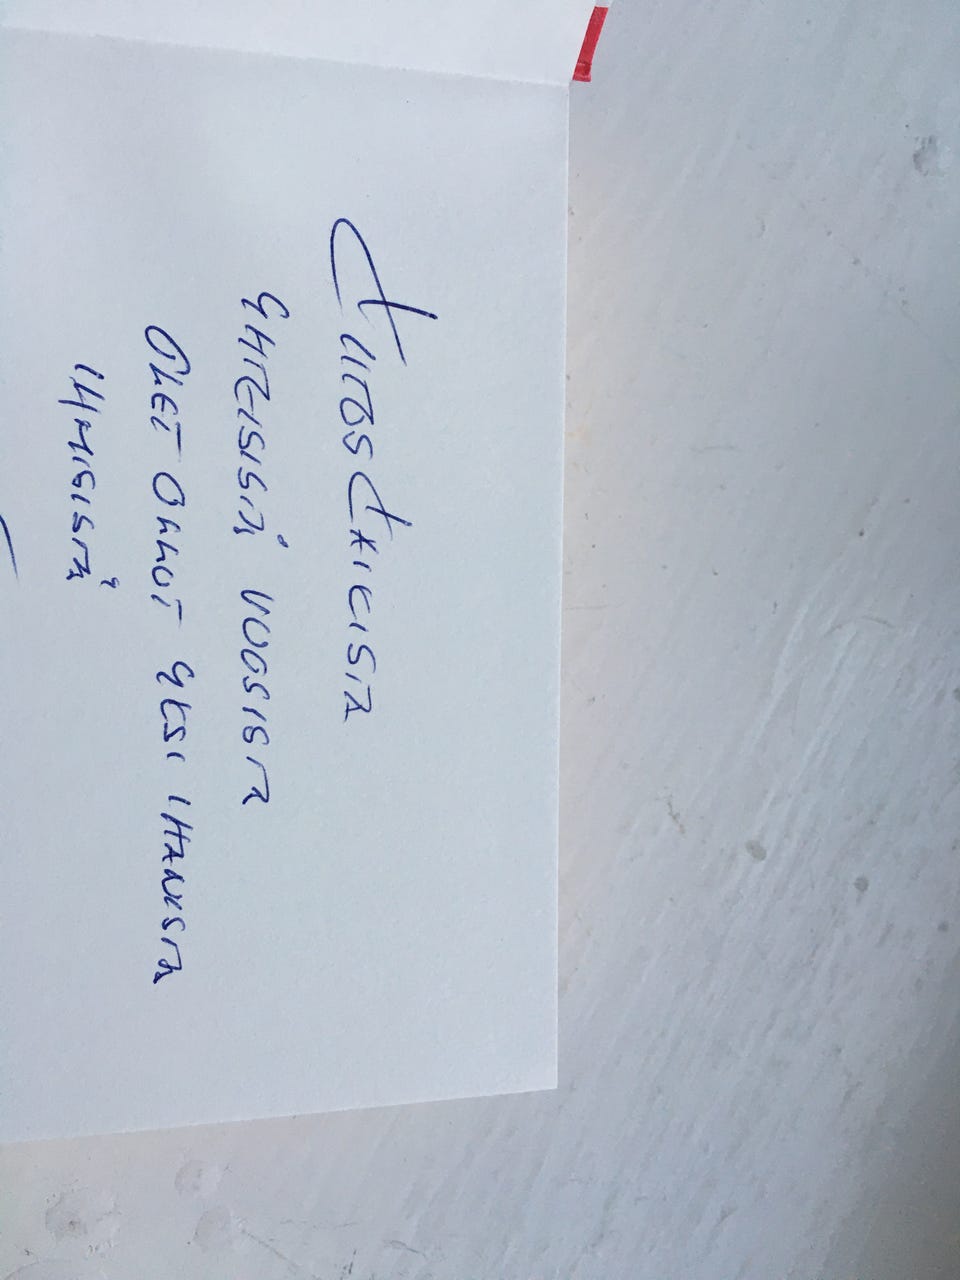 KIITOS KAIKISTA
YHTEISISTÄ VUOSISTA
OLET OLLUT YKSI IHANISTA
IHMISISTÄ